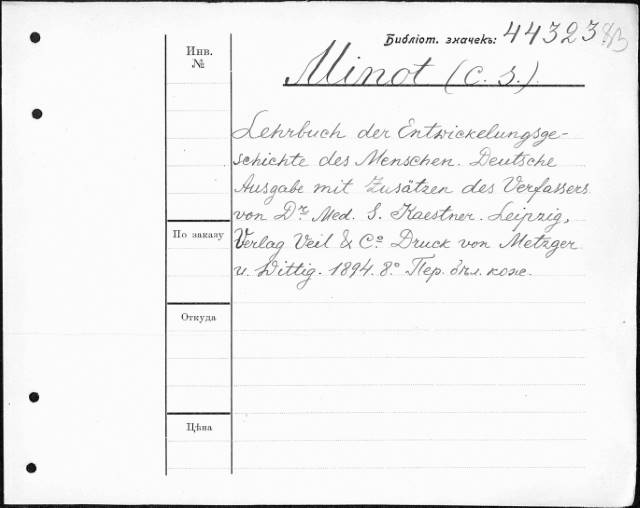 Библіот. значекъ: 44323
Инв.
№
Minot (C. S.)
Lehrbuch der Entwickelungsge-
schichte des Menschen. Deutsche
Ausgabe mit Zusätzen des Verfassers
von Dr. Med. S. Kaestner. Leipzig,
Verlag Veil & Co Druck von Metzger
u. Wittig. 1894. 8.° Пер. бѣл. коже.
По заказу
Откуда
Цѣна